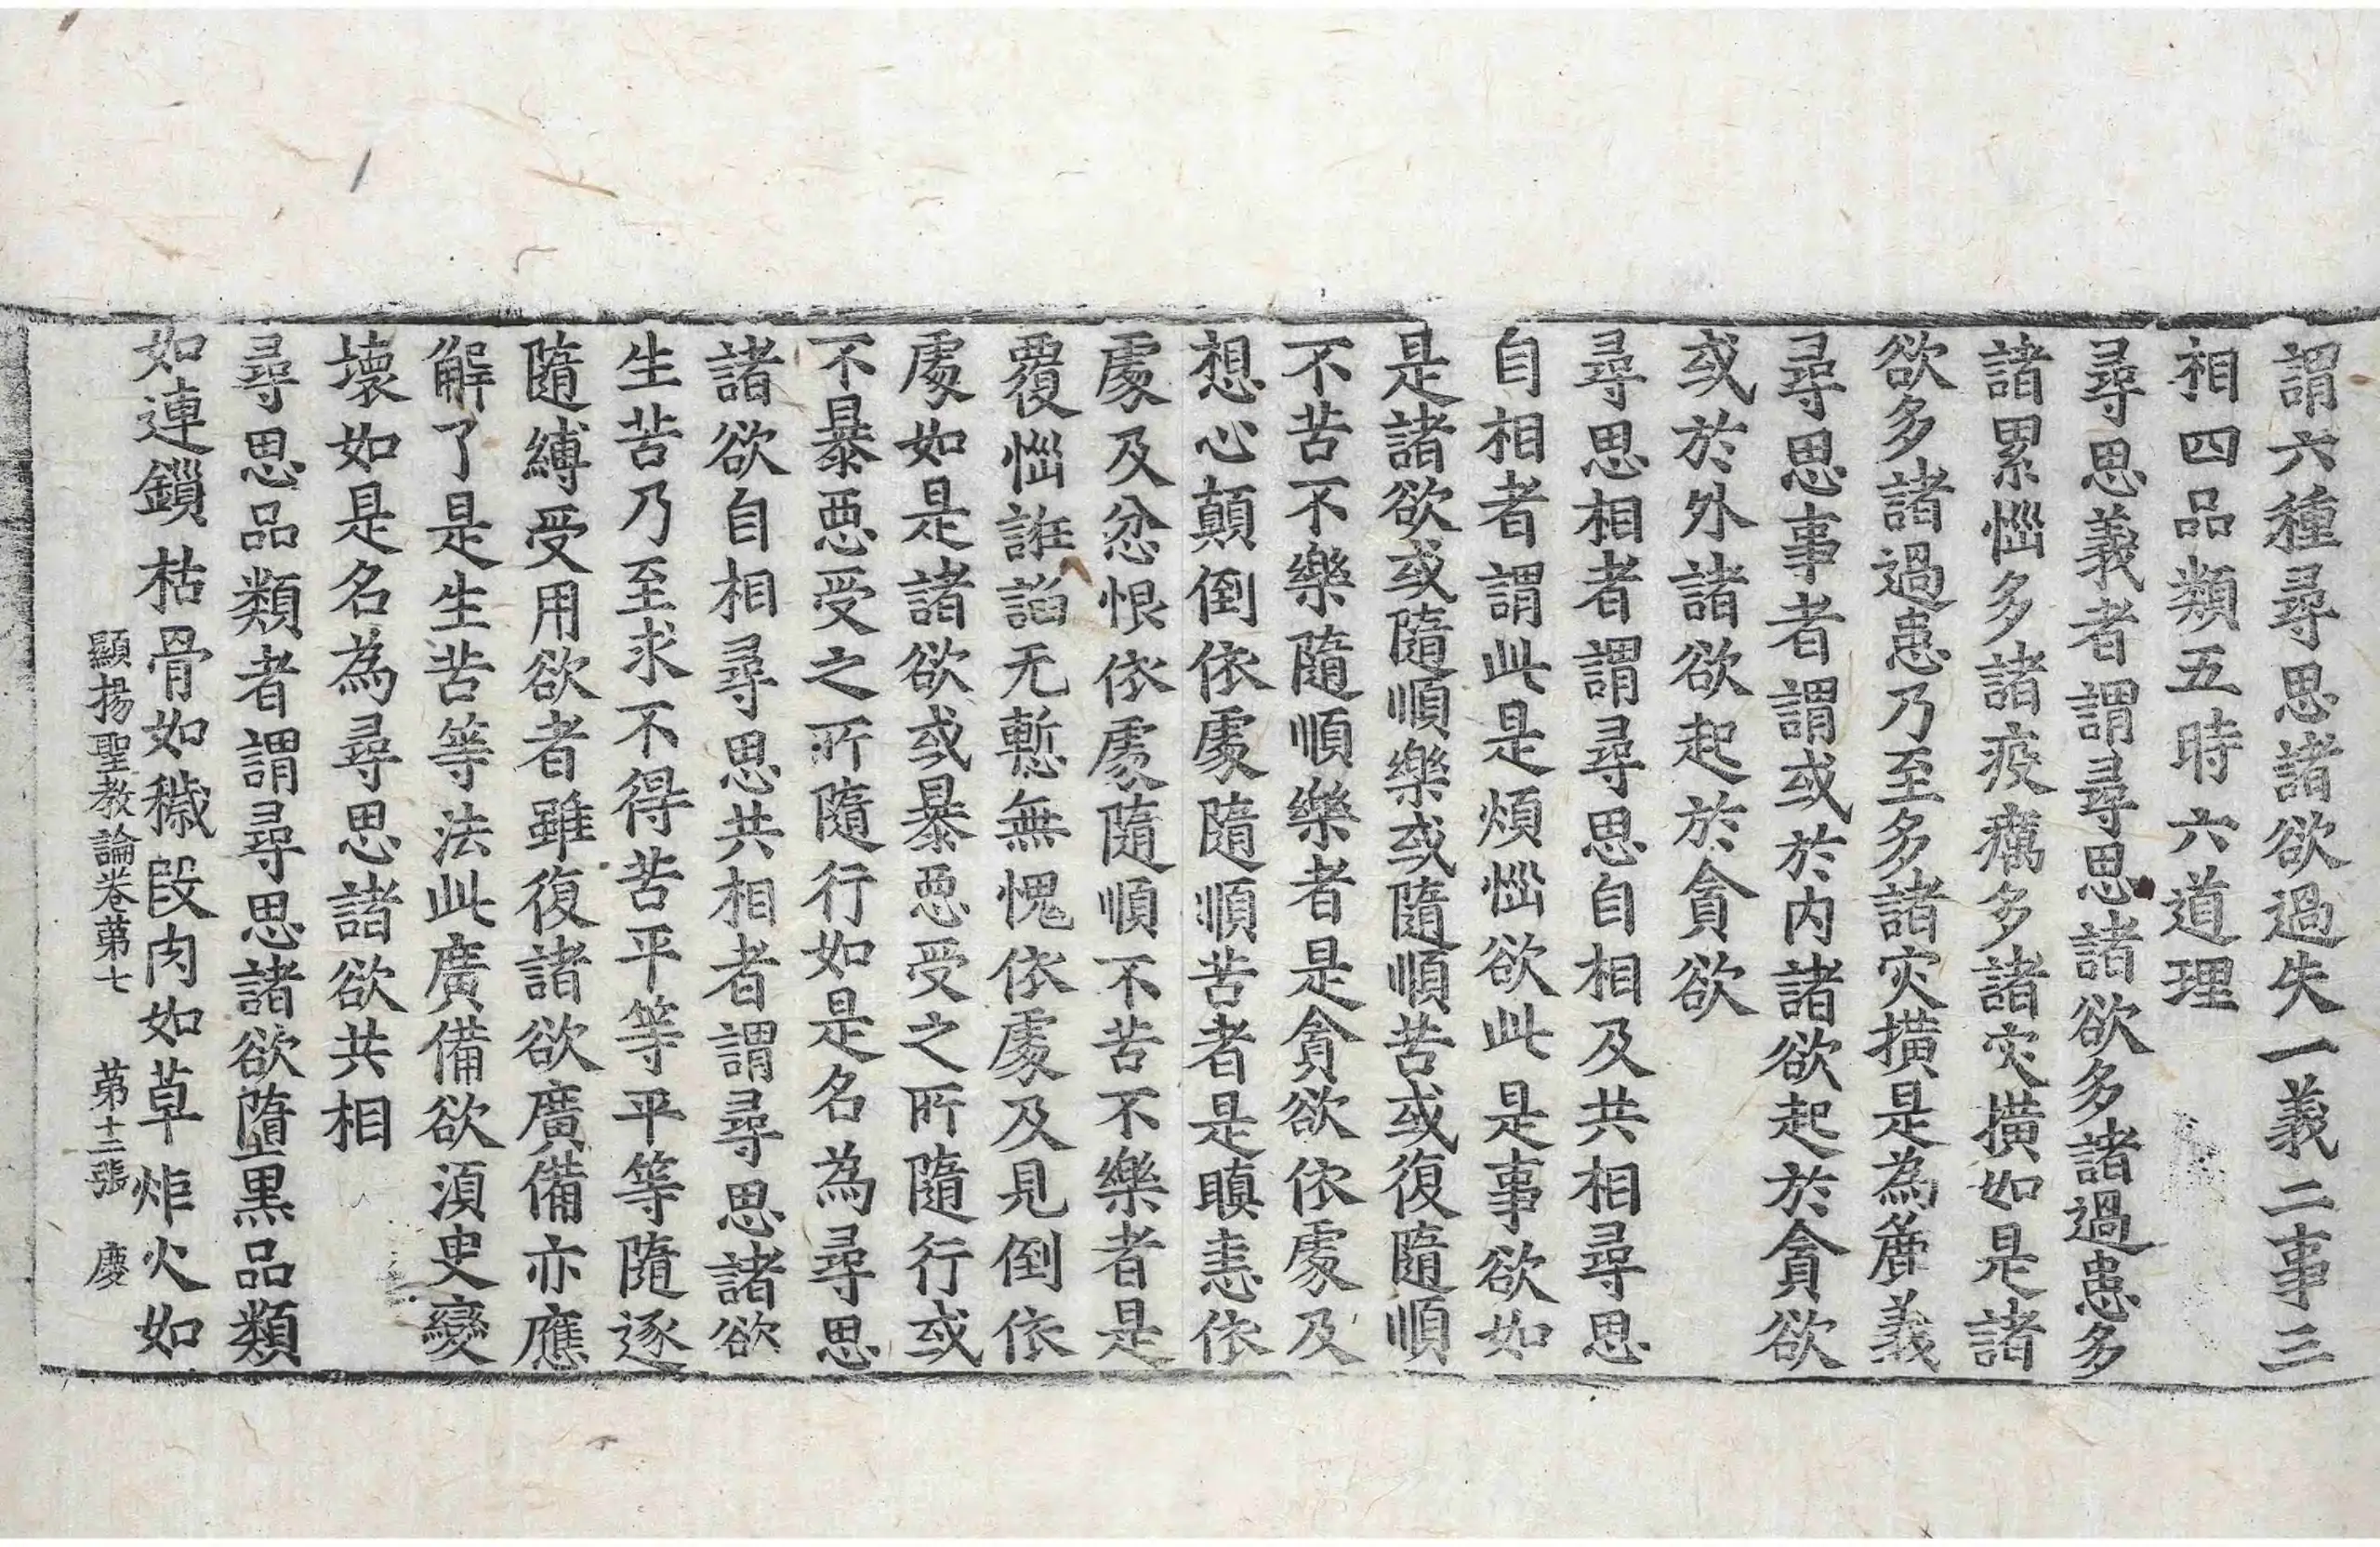 謂六種尋思諸欲過失一義二事三
相四品類五時六道理
尋思義者謂尋思諸欲多諸過患多
諸累惱多諸疫癘多諸灾擴如是諸
欲多諸過患乃至多諸灾擴是為𪋻義
尋思事者謂或於内諸欲起於貪欲
或於外諸欲起於貪欲
尋思相者謂尋思自相及共相尋思
自相者謂此是煩惱欲此是事欲如
是諸欲或隨順樂或隨順苦或復隨順
不苦不樂隨順樂者是貪欲依處及
想心顛倒依處隨順苦者是瞋恚依
處及忿恨依處隨順不苦不樂者是
覆惱誑諂无慙無愧依處及見倒依
處如是諸欲或暴惡受之所隨行或
不暴惡受之所隨行如是名為尋思
諸欲自相尋思共相者謂尋思諸欲
生苦乃至求不得苦平等平等隨逐
隨縛受用欲者雖復諸欲廣備亦應
解了是生苦等法此廣備欲湏臾變
壞如是名為尋思諸欲共相
尋思品類者謂尋思諸欲墮黑品類
如連鎻枯骨如穢段肉如草炬火如
顯揚聖教論卷第七 第十二張 慶